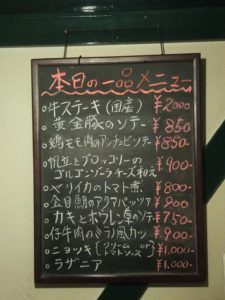 本日の一品メニュー
○牛ステーキ(国産) ¥2000
○黄金豚のソテー ¥850
○鶏モモ肉のアンチョビソテー ¥850-
○帆立とブロッコリーの
ゴルゴンゾーラチーズ和え ¥900-
○ヤリイカのトマト煮 ¥800-
○金目鯛のアクアパッツァ ¥900
○カキとホウレン草のソテー ¥750-
○仔牛肉のミラノ風カツ ¥900-
○ニョッキ{クリーム or
トマトソース} ¥1,000-
○ラザニア ¥1,000-